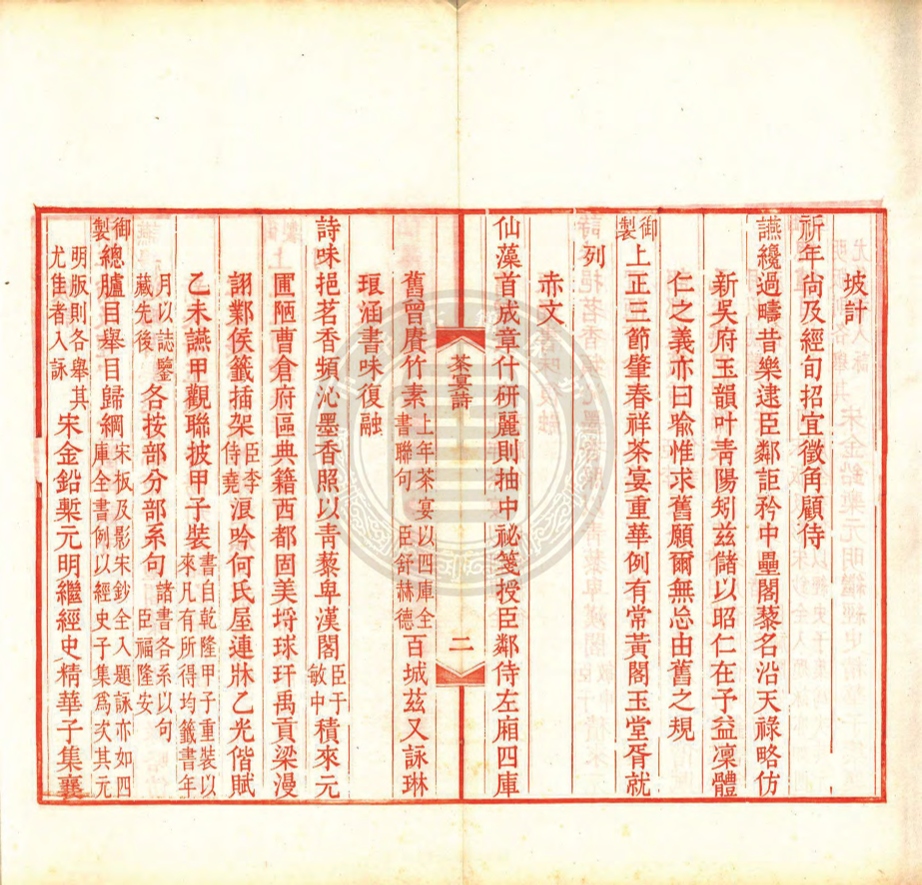 坡計
祈年尙及經旬招宜徵角顧侍
讌纔過疇昔樂逮臣鄰詎矜中壘閣藜名沿天祿略仿
新吳府玉韻叶靑陽矧兹儲以昭仁在予益凜體
仁之義亦曰喩惟求舊願爾無忘由舊之規
御製上正三節肇春祥茶宴重華例有常黃閣玉堂胥就
列
赤文
仙藻首成章什研麗則抽中祕箋授臣鄰侍左廂四庫
茶宴詩
二
舊曾賡竹素上年茶宴以四庫全書聯句臣舒赫德百城兹又詠琳
琅涵書味復融
詩味挹茗香頻沁墨香照以靑藜卑漢閣臣于敏中積來元
圃陋曹倉府區典籍西都固美埒球玕禹貢梁漫
詡鄴侯籤插架臣李侍堯浪吟何氏屋連牀乙光偕賦
乙未讌甲觀聯披甲子裝書自乾隆甲子重裝以來凡有所得均籤書年
月以誌鑒藏先後各按部分部系句諸書各系以句臣福隆安
御製總臚目舉目歸綱宋板及影宋鈔全入題詠亦如四庫全書例以經史子集爲次其元
明版則各舉其尤隹者入詠宋金鉛槧元明繼經史精華子集襄